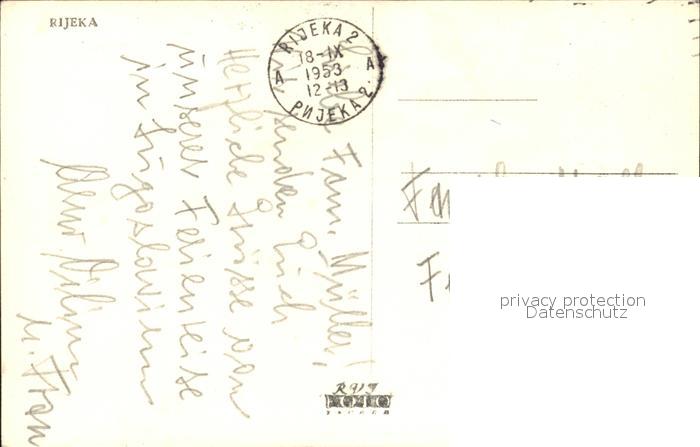 RIJEKA
RIJEKA 2
18-IX
1953
12-13
A A
РИЈЕКА 2.
Fam. Müller!
senden Euch
Herzliche Grüsse von
unserer Ferienreise
in Jugoslawien
u. Frau
Fam
privacy protection
Datenschutz
FOTO
ZAGREB